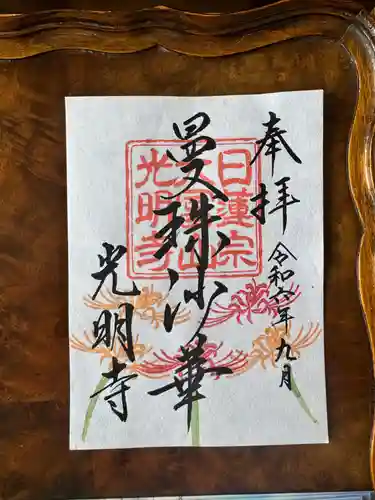 奉拝
令和六年九月
曼珠沙華
光明寺
日蓮宗
光明寺